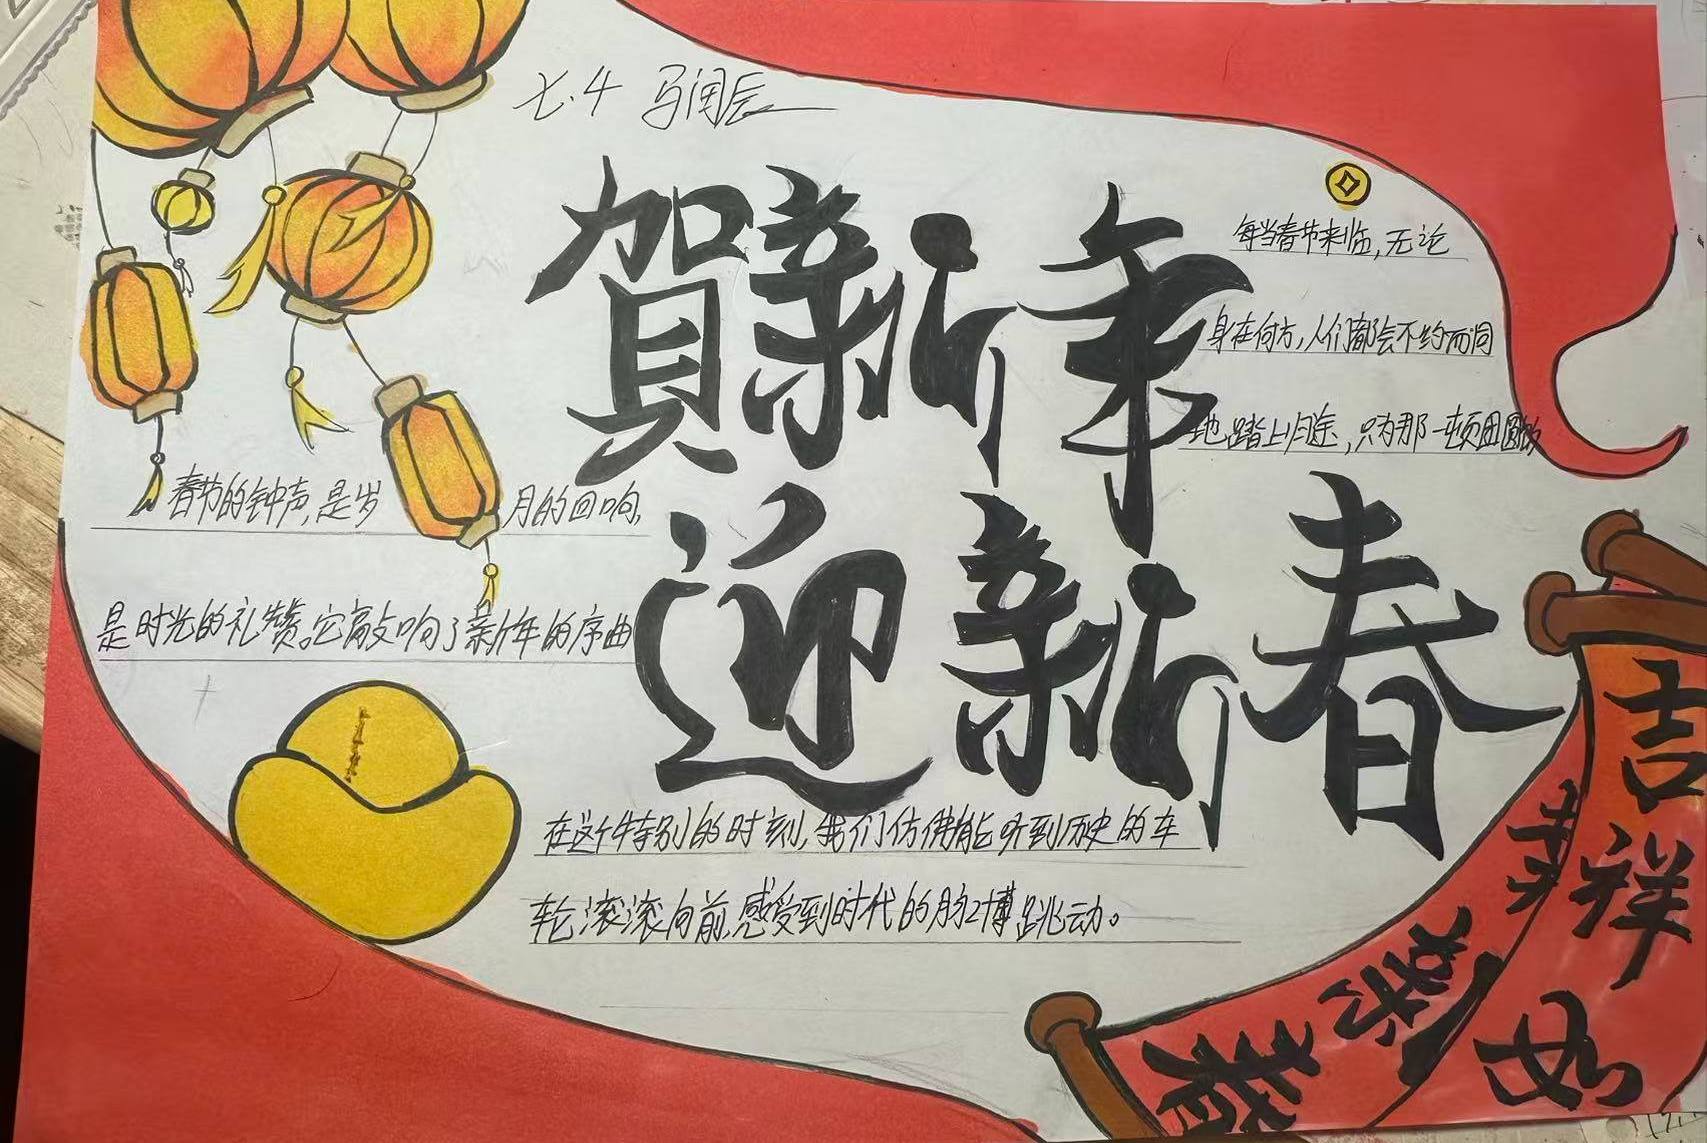 七.4 马闰辰
賀新年
迎新春
每当春节来临,无论
身在何方,人们都会不约而同
地踏上归途,只为那一顿团圆饭
春节的钟声,是岁月的回响,
是时光的礼赞。它敲响了新年的序曲
在这个特别的时刻,我们仿佛能听到历史的车
轮滚滚向前,感受到时代的脉搏跳动。
吉祥如